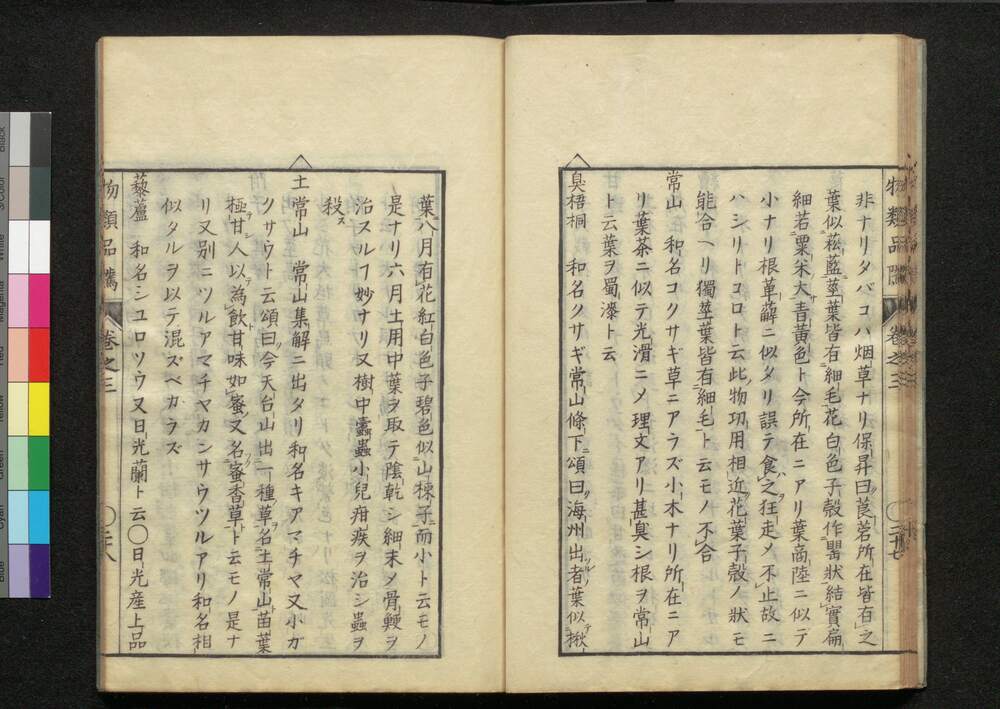 非ナリタバコハ烟草ナリ保昇曰莨菪所在皆有之
葉似菘藍莖葉皆有細毛花白色子殼作罌狀結實扁
細若粟米大青黃色ト今所在ニアリ葉商陸ニ似テ
小ナリ根萆薢ニ似タリ誤テ食之狂走メ不止故ニ
ハシリトコロト云此物功用相近花葉子殼ノ狀モ
能合ヘリ獨莖葉皆有細毛ト云モノ不合
常山 和名コクサギ草ニアラズ小木ナリ所在ニア
リ葉茶ニ似テ光滑ニメ理文アリ甚臭シ根ヲ常山
ト云葉ヲ蜀漆ト云
臭梧桐 和名クサギ常山條下ニ頌曰海州出者葉似楸
葉八月有花紅白色子碧色似山楝子而小ト云モノ
是ナリ六月土用中葉ヲ取テ陰乾シ細末メ骨鯁ヲ
治スルヿ妙ナリ又樹中蠧蟲小兒疳疾ヲ治シ蟲ヲ
殺ス
土常山 常山集解ニ出タリ和名キアマチヤ又小ガ
クサウト云頌曰今天台山出一種草名土常山苗葉
極甘人以為飲甘味如蜜又名蜜香草ト云モノ是ナ
リ又別ニツルアマチヤカンサウツルアリ和名相
似タルヲ以テ混ズベカラズ
藜蘆 和名シユロソウ又日光蘭ト云〇日光産上品
物類品隲 卷之三 〇二十七
物類品隲 卷之三 〇二八